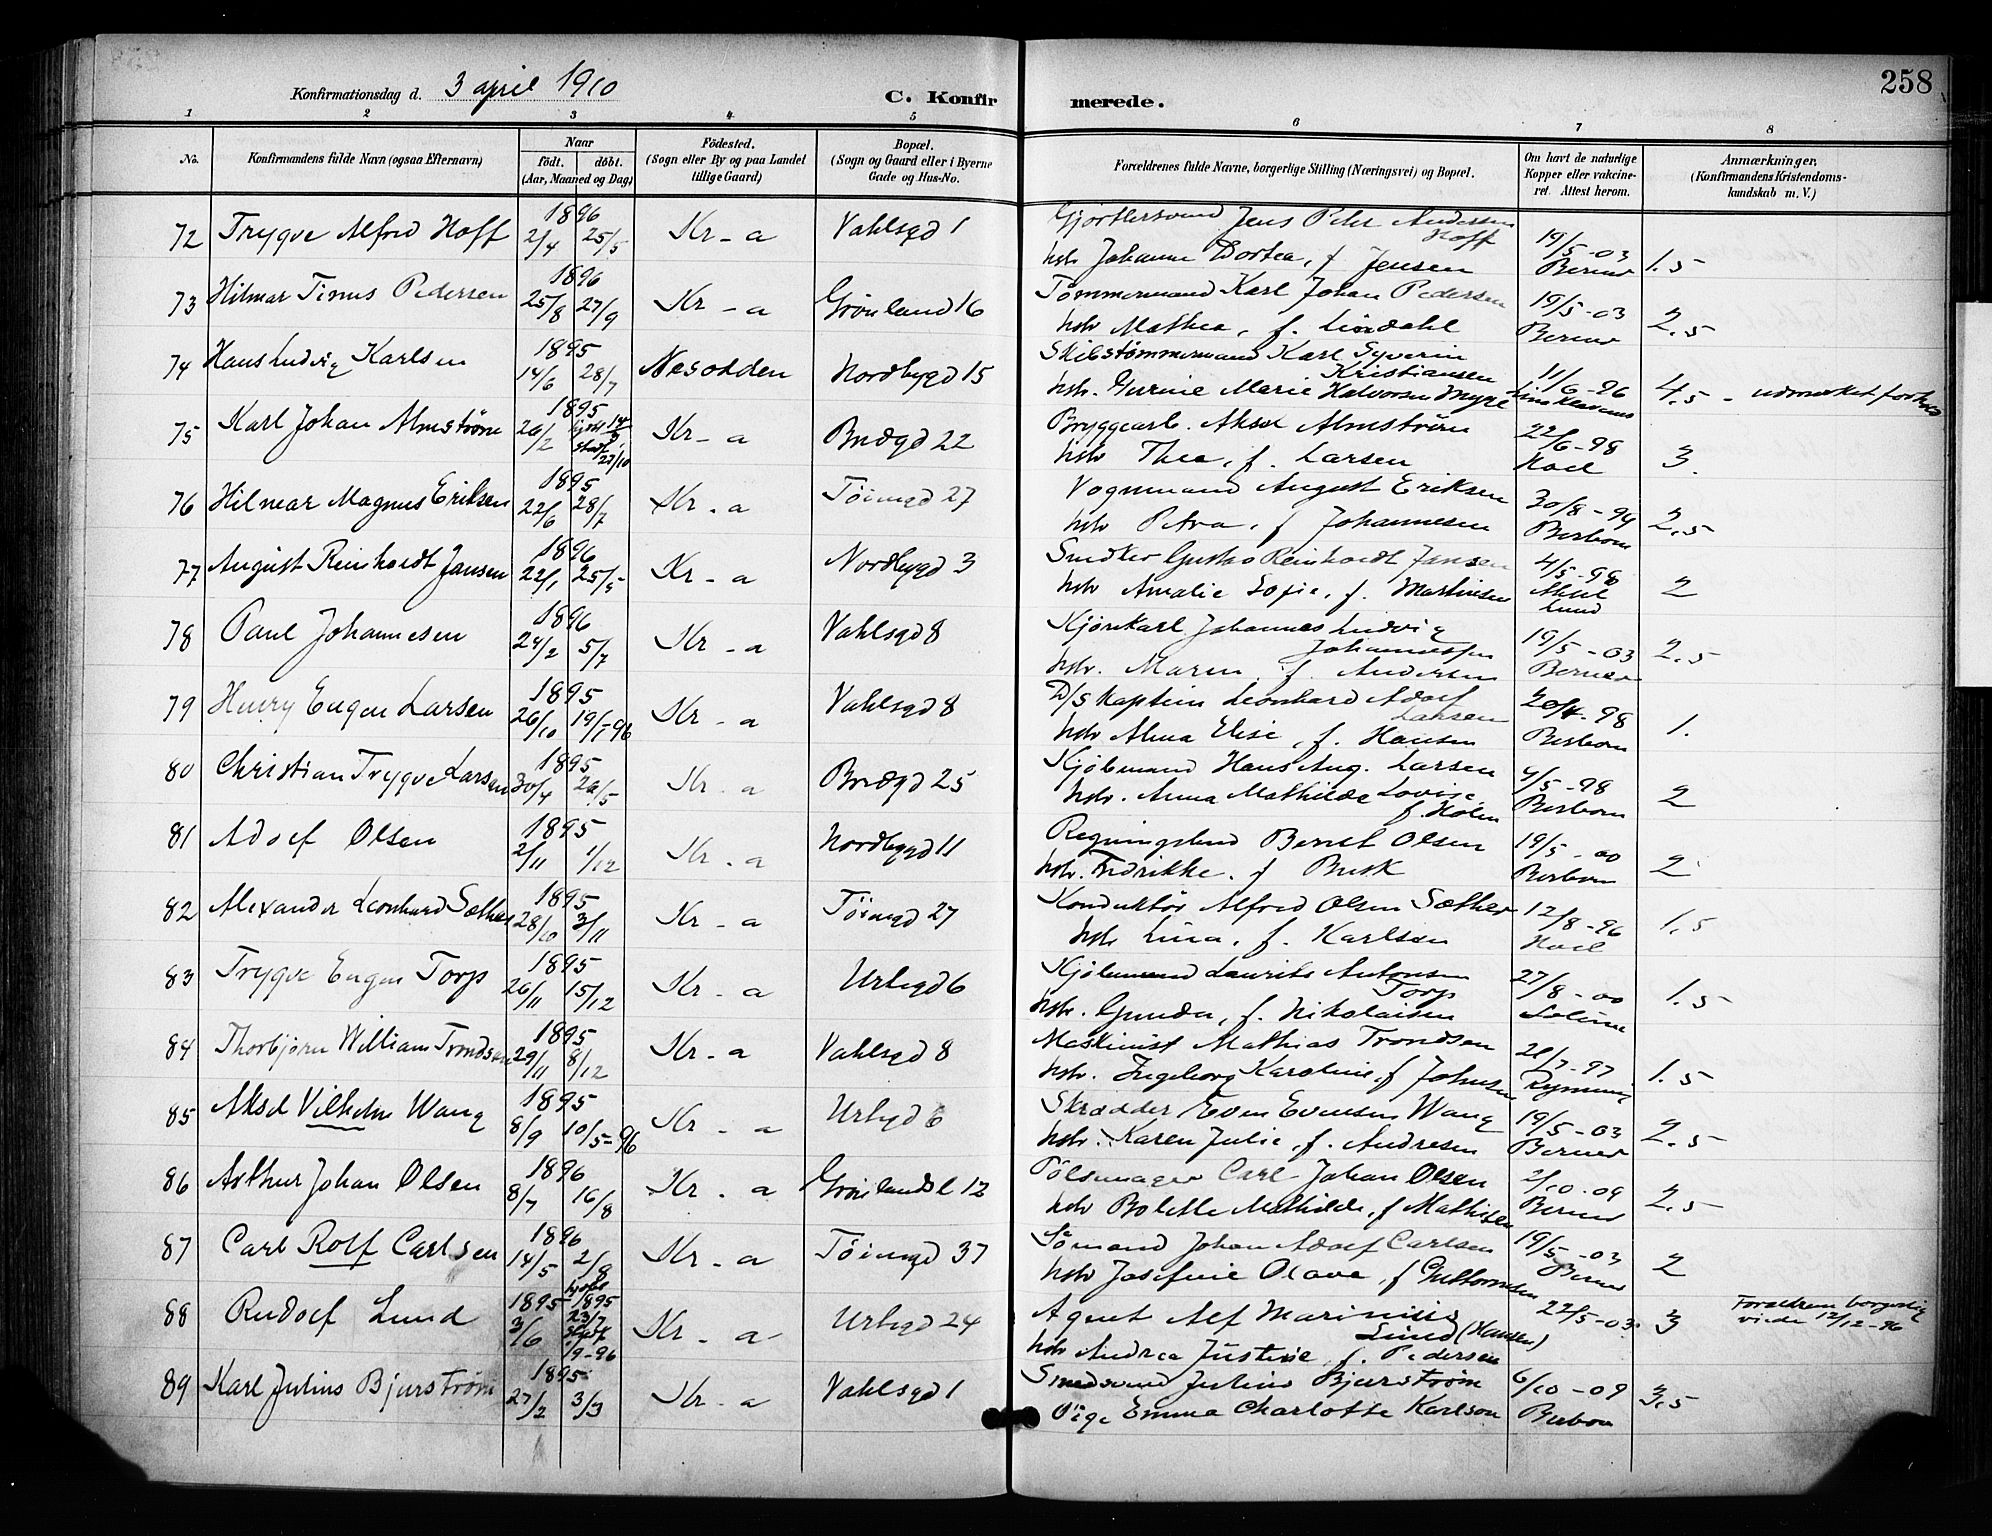 258
Konfirmationsdag d. 3 april 1910
C. Konfirmerede.
1 2 3 4 5 6 7 8
No.
Konfirmandens fulde Navn (ogsaa Efternavn)
Naar
født. døbt.
(Aar, Maaned og Dag)
Fødested.
(Sogn eller By og paa Landet tillige Gaard)
Bopæl.
(Sogn og Gaard eller i Byerne Gade og Hus-No.
Forældrenes fulde Navne, borgerlige Stilling (Næringsvei) og Bopæl.
Om havt de naturlige Kopper eller vakcineret. Attest herom.
Anmærkninger,
(Konfirmandens Kristendomskundskab m. V.)
72 Trygve Alfred Hoff 1896 2/4 25/5 Kr-a Vahlsgd 1 Gjørtlersvend Jens Peter Andersen Hoff
hstr Johanne Dortea, f Jensen 19/5-03 Berner 1.5
73 Hilmar Tinus Pedersen 1896 25/8 27/9 Kr-a Grønland 16 Tømmermand Karl Johan Pedersen
hstr Mathea, f. Lindahl 19/5-03 Berner 2.5
74 Hans Ludvig Karlsen 1895 14/6 28/7 Nesodden Nordbygd 15 Skibstømmermand Karl Syverin Kristiansen
hstr. Gurine Marie Halvorsen Myre 11/6-96 4.5 - udmerket forhold
75 Karl Johan Almstrøm 1895 26/2 Kr-a Brudgd 22 Bryggearb. Aksel Almstrøm
hstr Thea, f. Larsen 22/6-98 Hoel 3.
76 Hilmar Magnus Eriksen 1895 22/6 28/7 Kr-a Tøiengd 27 Vognmand August Eriksen
hstr Petra, f Johannesen 30/8-99 Berbom 2.5
77 August Reinhardt Jansen 1896 22/1 25/5 Kr-a Nordbygd 3 Snedker Gustav Reinhardt Jansen
hstr Amalie Sofie, f. Martinsen 4/5-98 Aksel Lund 2
78 Paul Johannesen 1896 24/2 5/7 Kr-a Vahlsgd 8 Kjørekarl Johannes Ludvig Johannessen
hstr. Maren f. Andersen 19/5-03 Berner 2.5
79 Henry Eugen Larsen 1895 26/10 19/1-96 Kr-a Vahlsgd 8 D/S Kaptein Leonhard Adolf Larsen
hstr Alma Elise, f. Hansen 20/4-98 Berbom 1.
80 Christian Trygve Larsen 1895 30/4 26/5 Kr-a Brudgd 25 Kjøbmand Hans Aug. Larsen
hstr. Anna Mathilde Lovise f. Holm 4/5-98 Berbom 2
81 Adolf Olsen 1895 2/11 1/12 Kr-a Nordbygd 11 Bernt Olsen
hstr. Fredrikke. f Busk 19/5-00 Berbom 2
82 Alexander Leonhard Sæther 1895 28/10 3/11 Kr-a Tøiengd 27 Konduktør Alfred Olsen Sæther
hstr Lina, f. Karlsen 12/8-96 Hoel 1.5
83 Trygve Eugen Torp 1895 26/11 15/12 Kr-a Urtegd 6 Kjøbmand Laurits Antonsen Torp
hstr. Gunda, f. Nikolaisen 27/8-00 1.5
84 Thorbjørn William Trondsen 1895 29/11 8/12 Kr-a Vahlsgd 8 Maskinist Mathias Trondsen
hstr. Ingeborg Karoline, f Johnsen 1.5
85 Aksel Vilhelm Wang 1895 8/9 10/5-96 Kr-a Urtegd 6 Skrædder Even Evensen Wang
hstr. Karen Julie, f. Andresen 19/5-03 Berner 2.5
86 Arthur Johan Olsen 1896 8/7 16/8 Kr-a Grønlandsl 12 Pølsemager Carl Johan Olsen
hstr Bolette Mathilde, f Mathisen 2/10-09 Berner 2.5
87 Carl Rolf Carlsen 1896 14/5 2/8 Kr-a Tøiengd 37 Sømand Johan Adolf Carlsen
hstr Josefine Olava, f Guttormsen 19/5-03 Berner 2
88 Rudolf Lund 1895 3/6 hjdbt 1895 23/7 Kr-a Urtegd 24 Agent Alf Marinius Lund (Hansen)
hstr Andrea Justine, f. Pedersen 22/5-03 3 Forældrene borgerlig viede 12/12-96
89 Karl Julius Bjurstrøm 1895 27/2 3/3 Kr-a Vahlsgd 1 Smedsvend Julius Bjurstrøm
Pige Emma Charlotte Karlson 6/10-09 Berbom 3.5